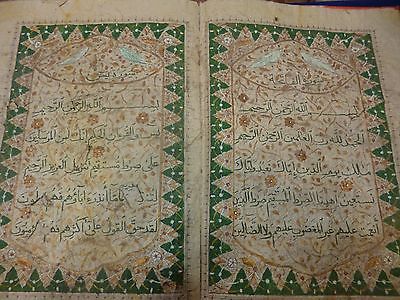 بسم الله الرحمن الرحيم
الحمد لله رب العلمين الرحمن الرحيم
مالك يوم الدين إياك نعبد وإياك
نستعين اهدنا الصراط المستقيم صراط الذين
أنعمت عليهم غير المغضوب عليهم ولا الضالين
بسم الله الرحمن الرحيم
يس والقرآن الحكيم إنك لمن المرسلين
على صراط مستقيم تنزيل العزيز الرحيم
لتنذر قوما ما أنذر آباؤهم فهم غافلون
لقد حق القول على أكثرهم فهم لا يؤمنون